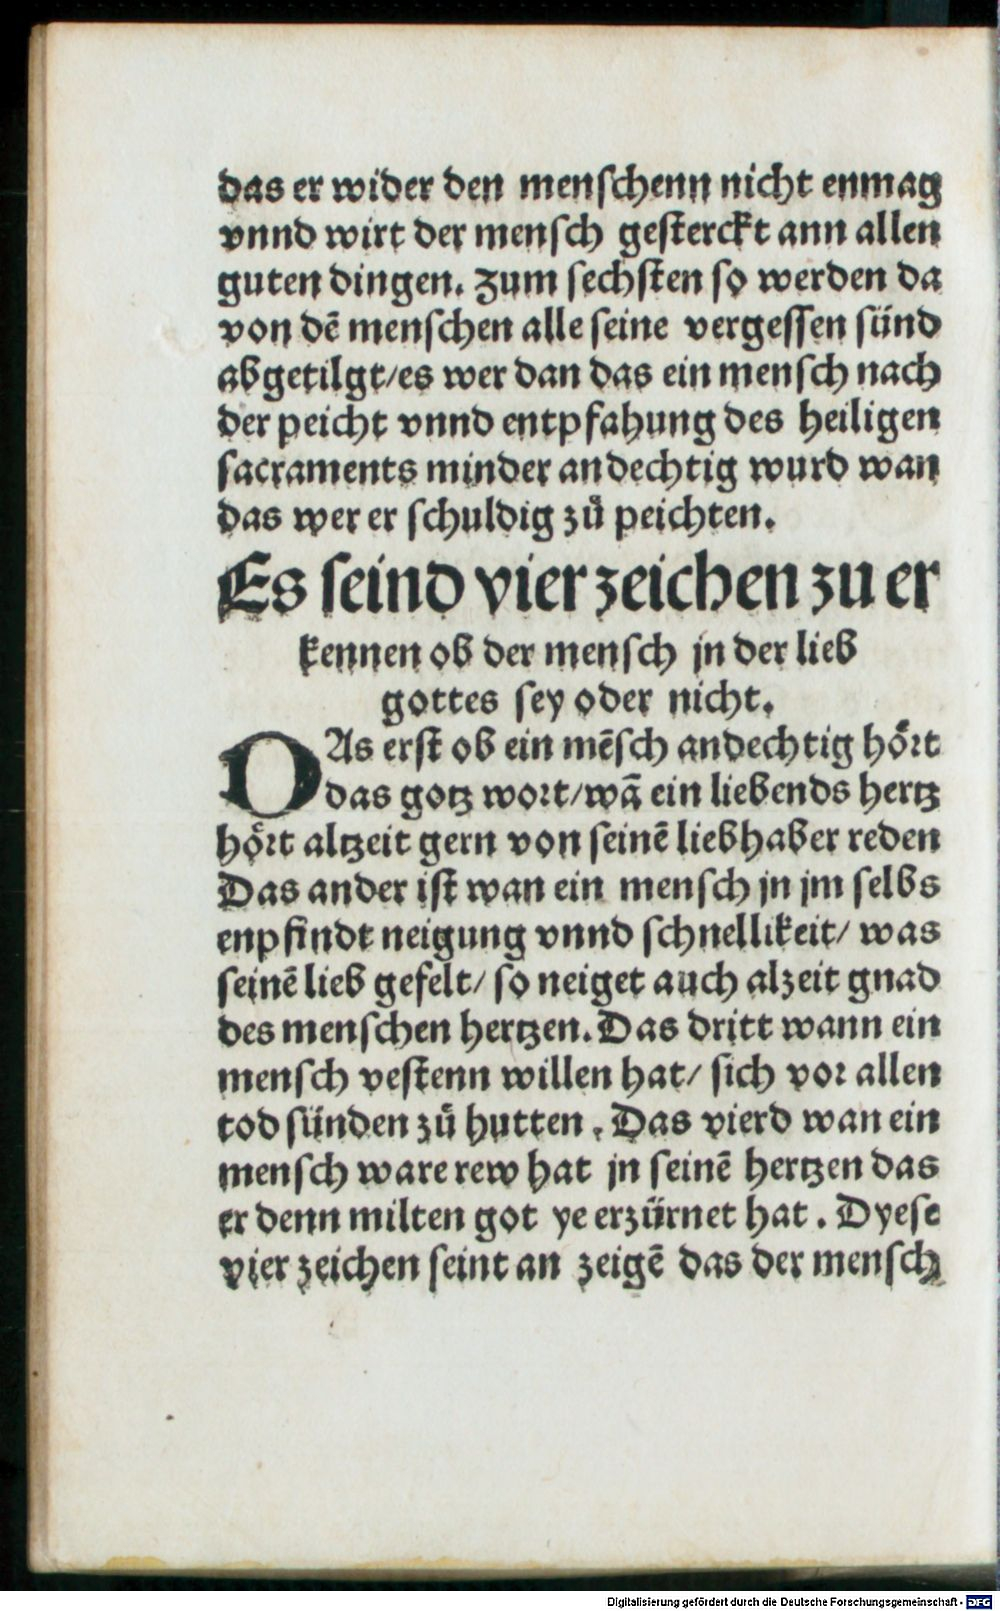 das er wider den menschenn nicht enmag
vnnd wirt der mensch gesterckt ann allen
guten dingen. Zum sechsten so werden da
von dē menschen alle seine vergessen sünd
abgetilgt/es wer dan das ein mensch nach
der peicht vnnd entpfahung des heiligen
sacraments minder andechtig wurd wan
das wer er schuldig zů peichten.
Es seind vier zeichen zu er
kennen ob der mensch jn der lieb
gottes sey oder nicht.
DAs erst ob ein mēsch andechtig hoͤrt
das gotz wort/wā ein liebends hertz
hoͤrt altzeit gern von seinē liebhaber reden
Das ander ist wan ein mensch jn jm selbs
enpfindt neigung vnnd schnellikeit/ was
seinē lieb gefelt/ so neiget auch alzeit gnad
des menschen hertzen. Das dritt wann ein
mensch vestenn willen hat/ sich vor allen
tod sünden zů hutten. Das vierd wan ein
mensch ware rew hat jn seinē hertzen das
er denn milten got ye erzürnet hat. Dyese
vier zeichen seint an zeigē das der mensch
Digitalisierung gefördert durch die Deutsche Forschungsgemeinschaft - DFG